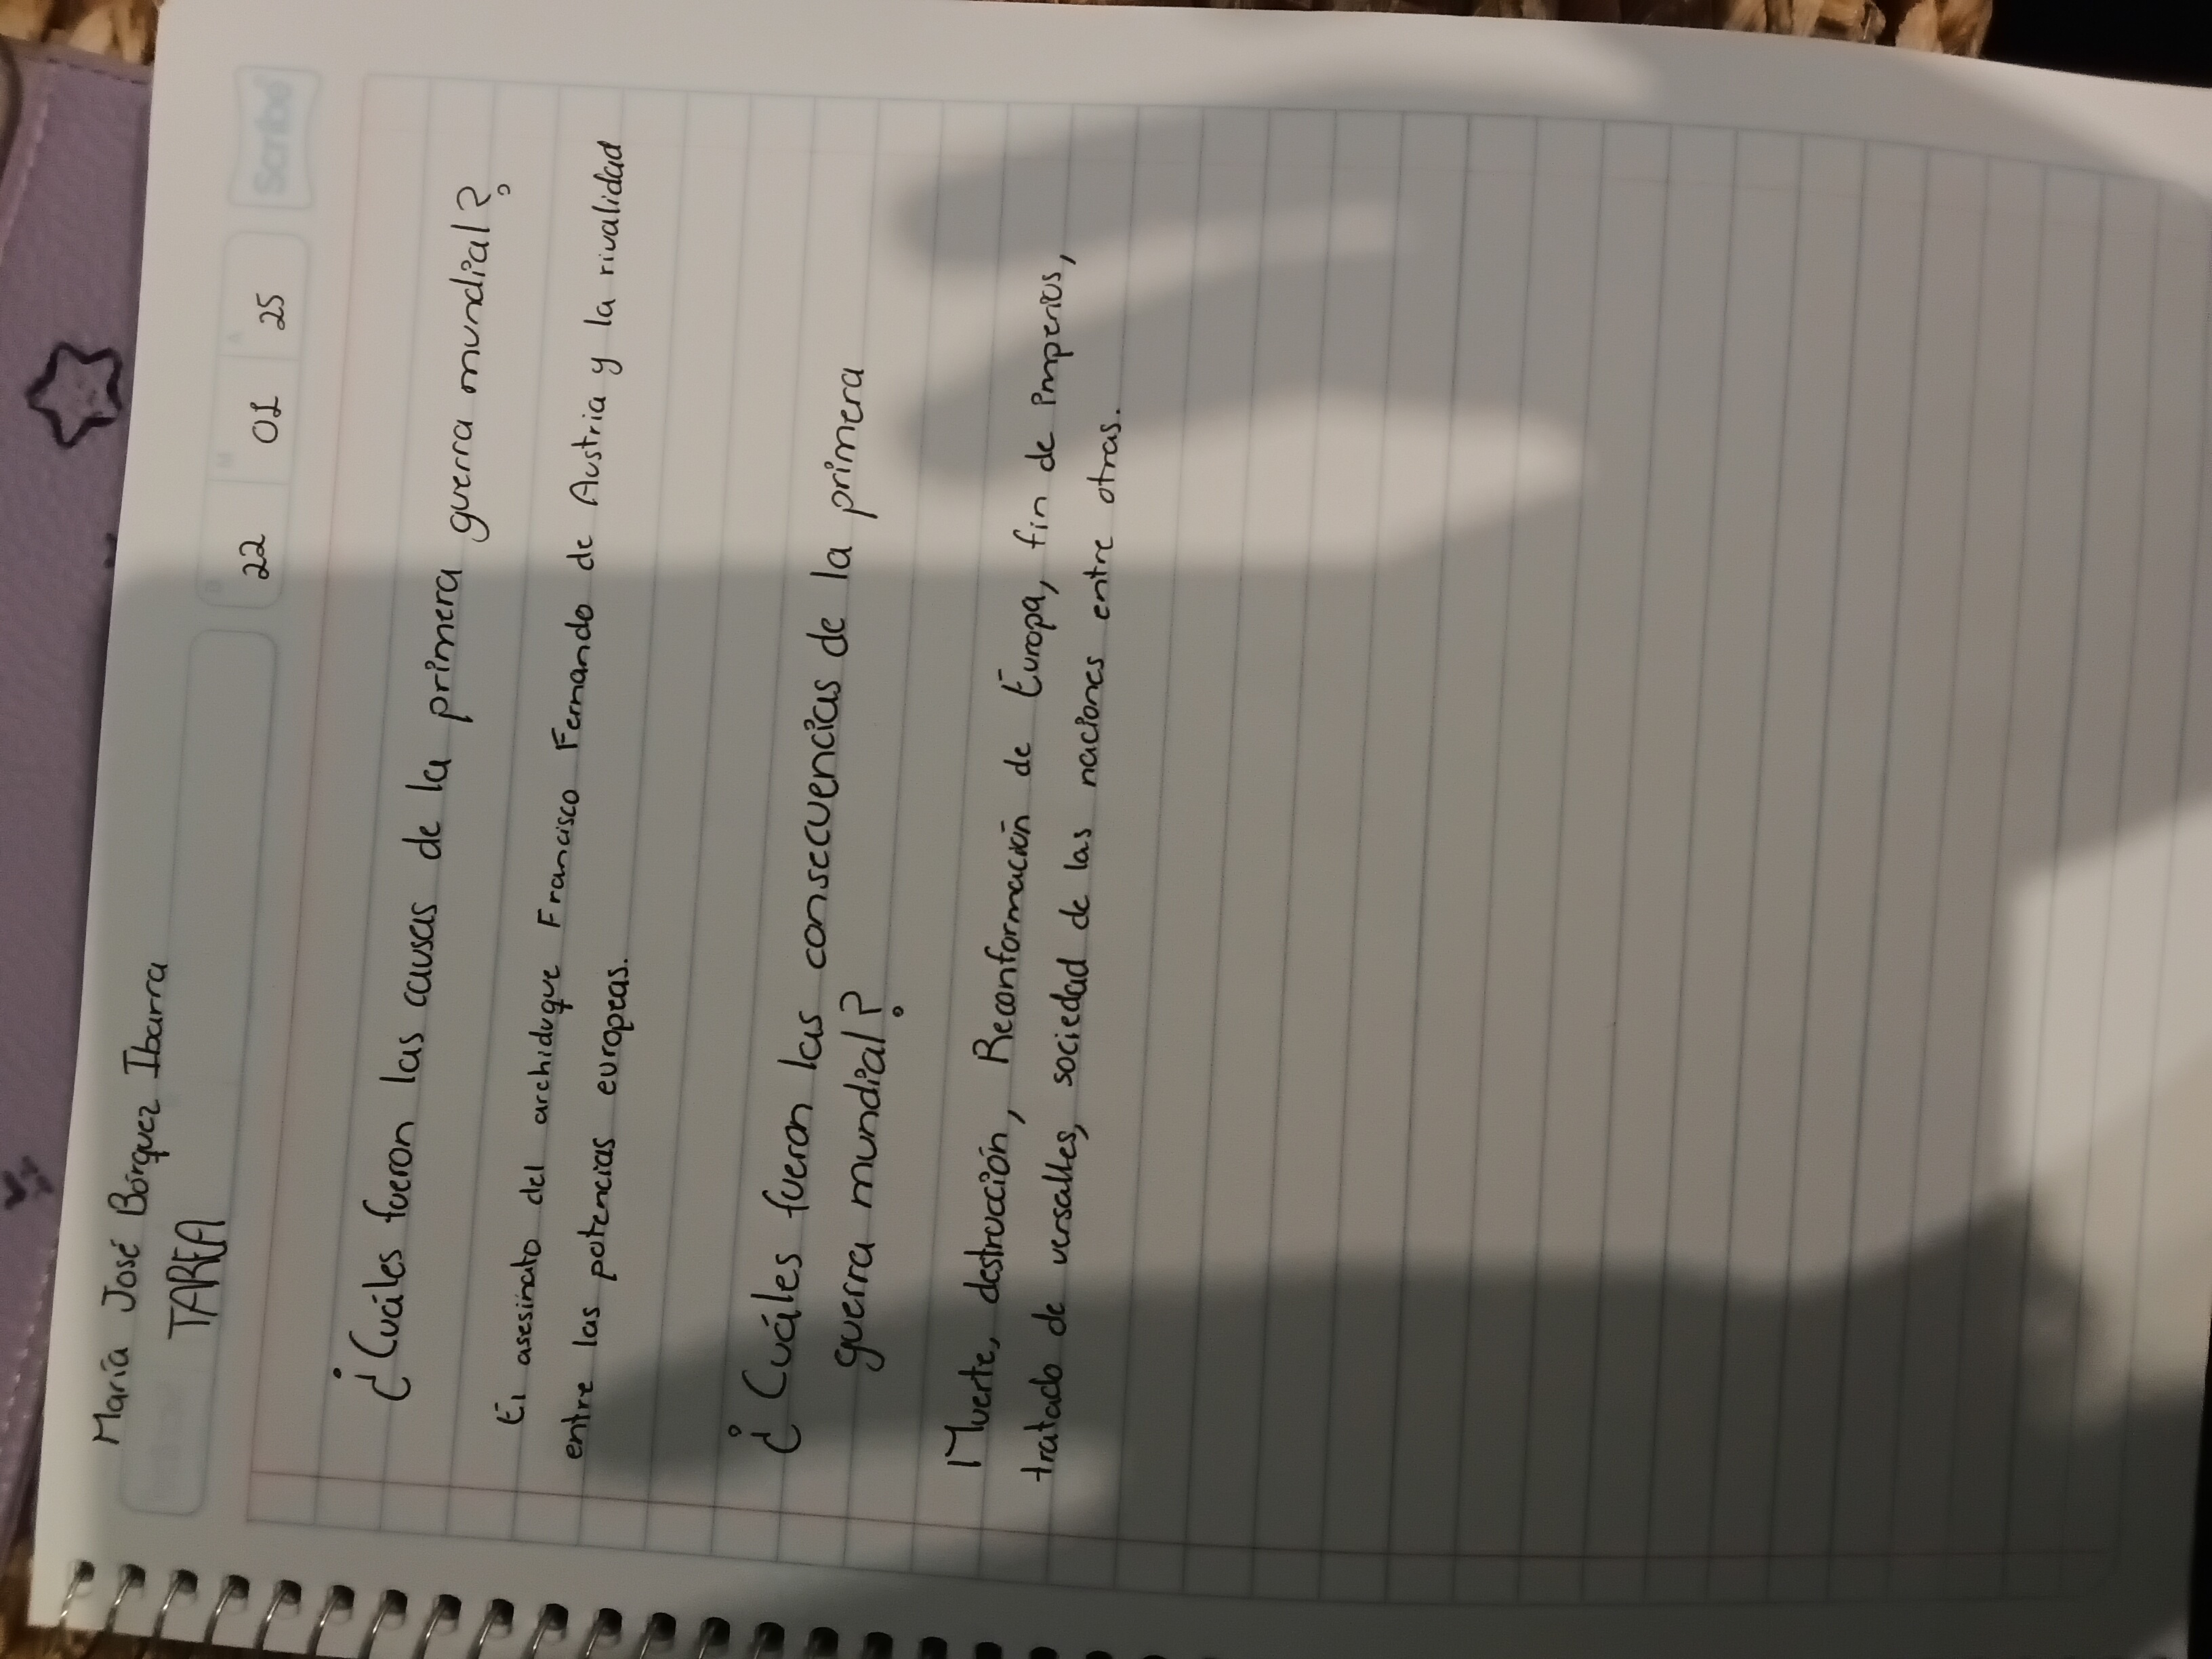 María José Bórquez Ibarra
TAREA
22 01 25
Scribe
¿Cuáles fueron las causas de la primera guerra mundial?
El asesinato del archiduque Francisco Fernando de Austria y la rivalidad
entre las potencias europeas.
¿Cuáles fueron las consecuencias de la primera
guerra mundial?
Muerte, destrucción, Reconformación de Europa, fin de imperios,
tratado de versalles, sociedad de las naciones entre otras.